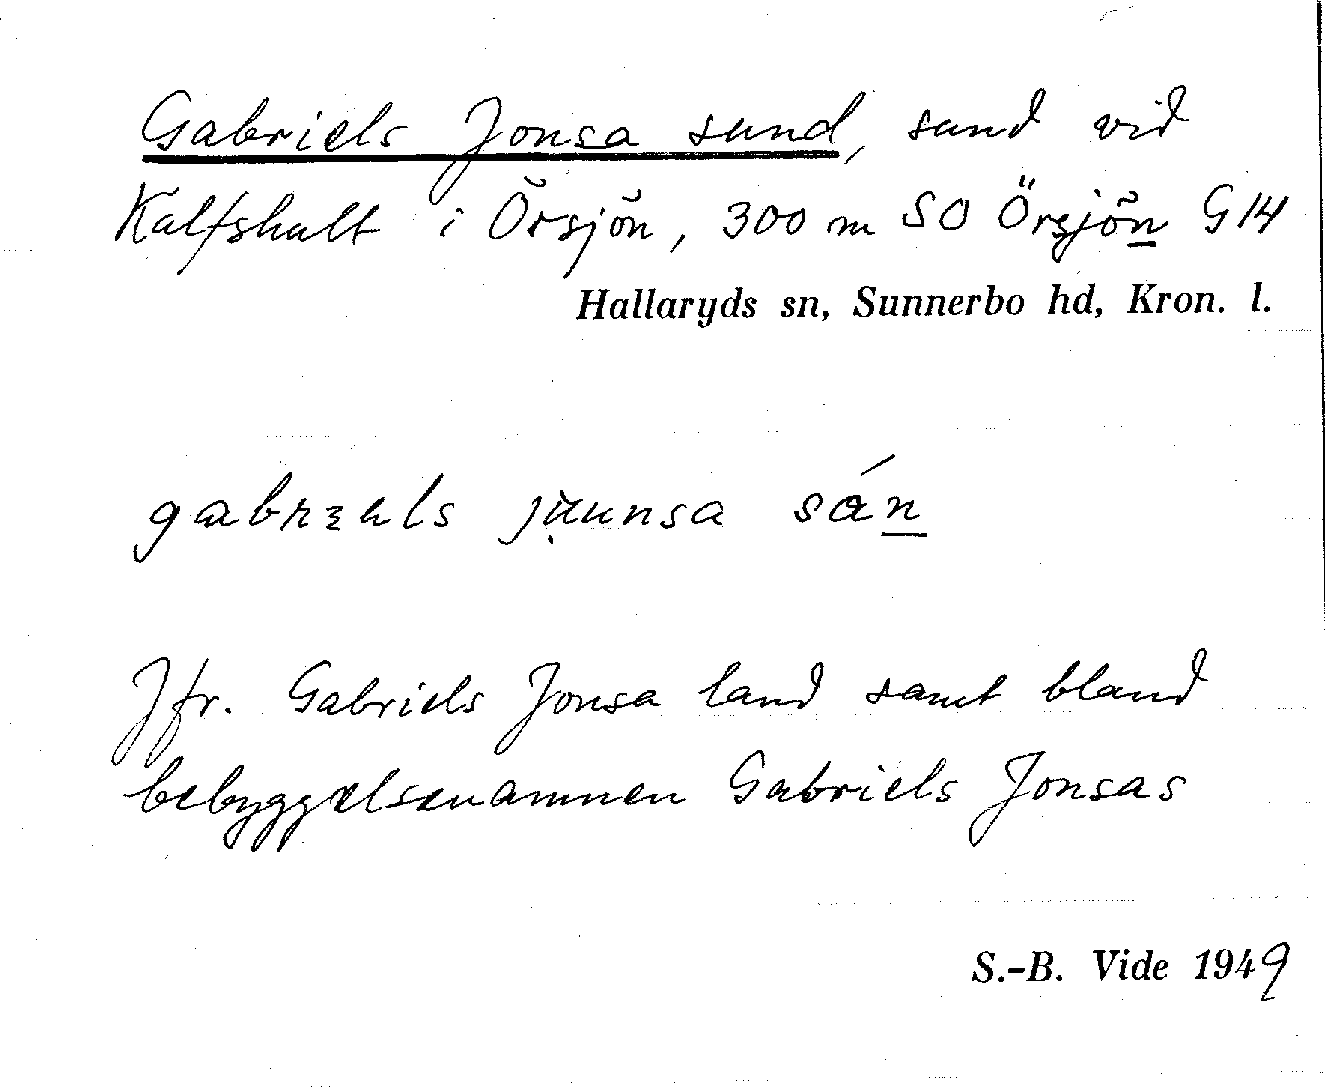 Gabriels Jonsa sund, sund vid
Kalfshult i Örsjön, 300 m SO Örsjön G 14
Hallaryds sn, Sunnerbo hd, Kron. l.
Jfr. Gabriels Jonsa land samt bland
bebyggelsenamnen Gabriels Jonsas
S.-B. Vide 1949